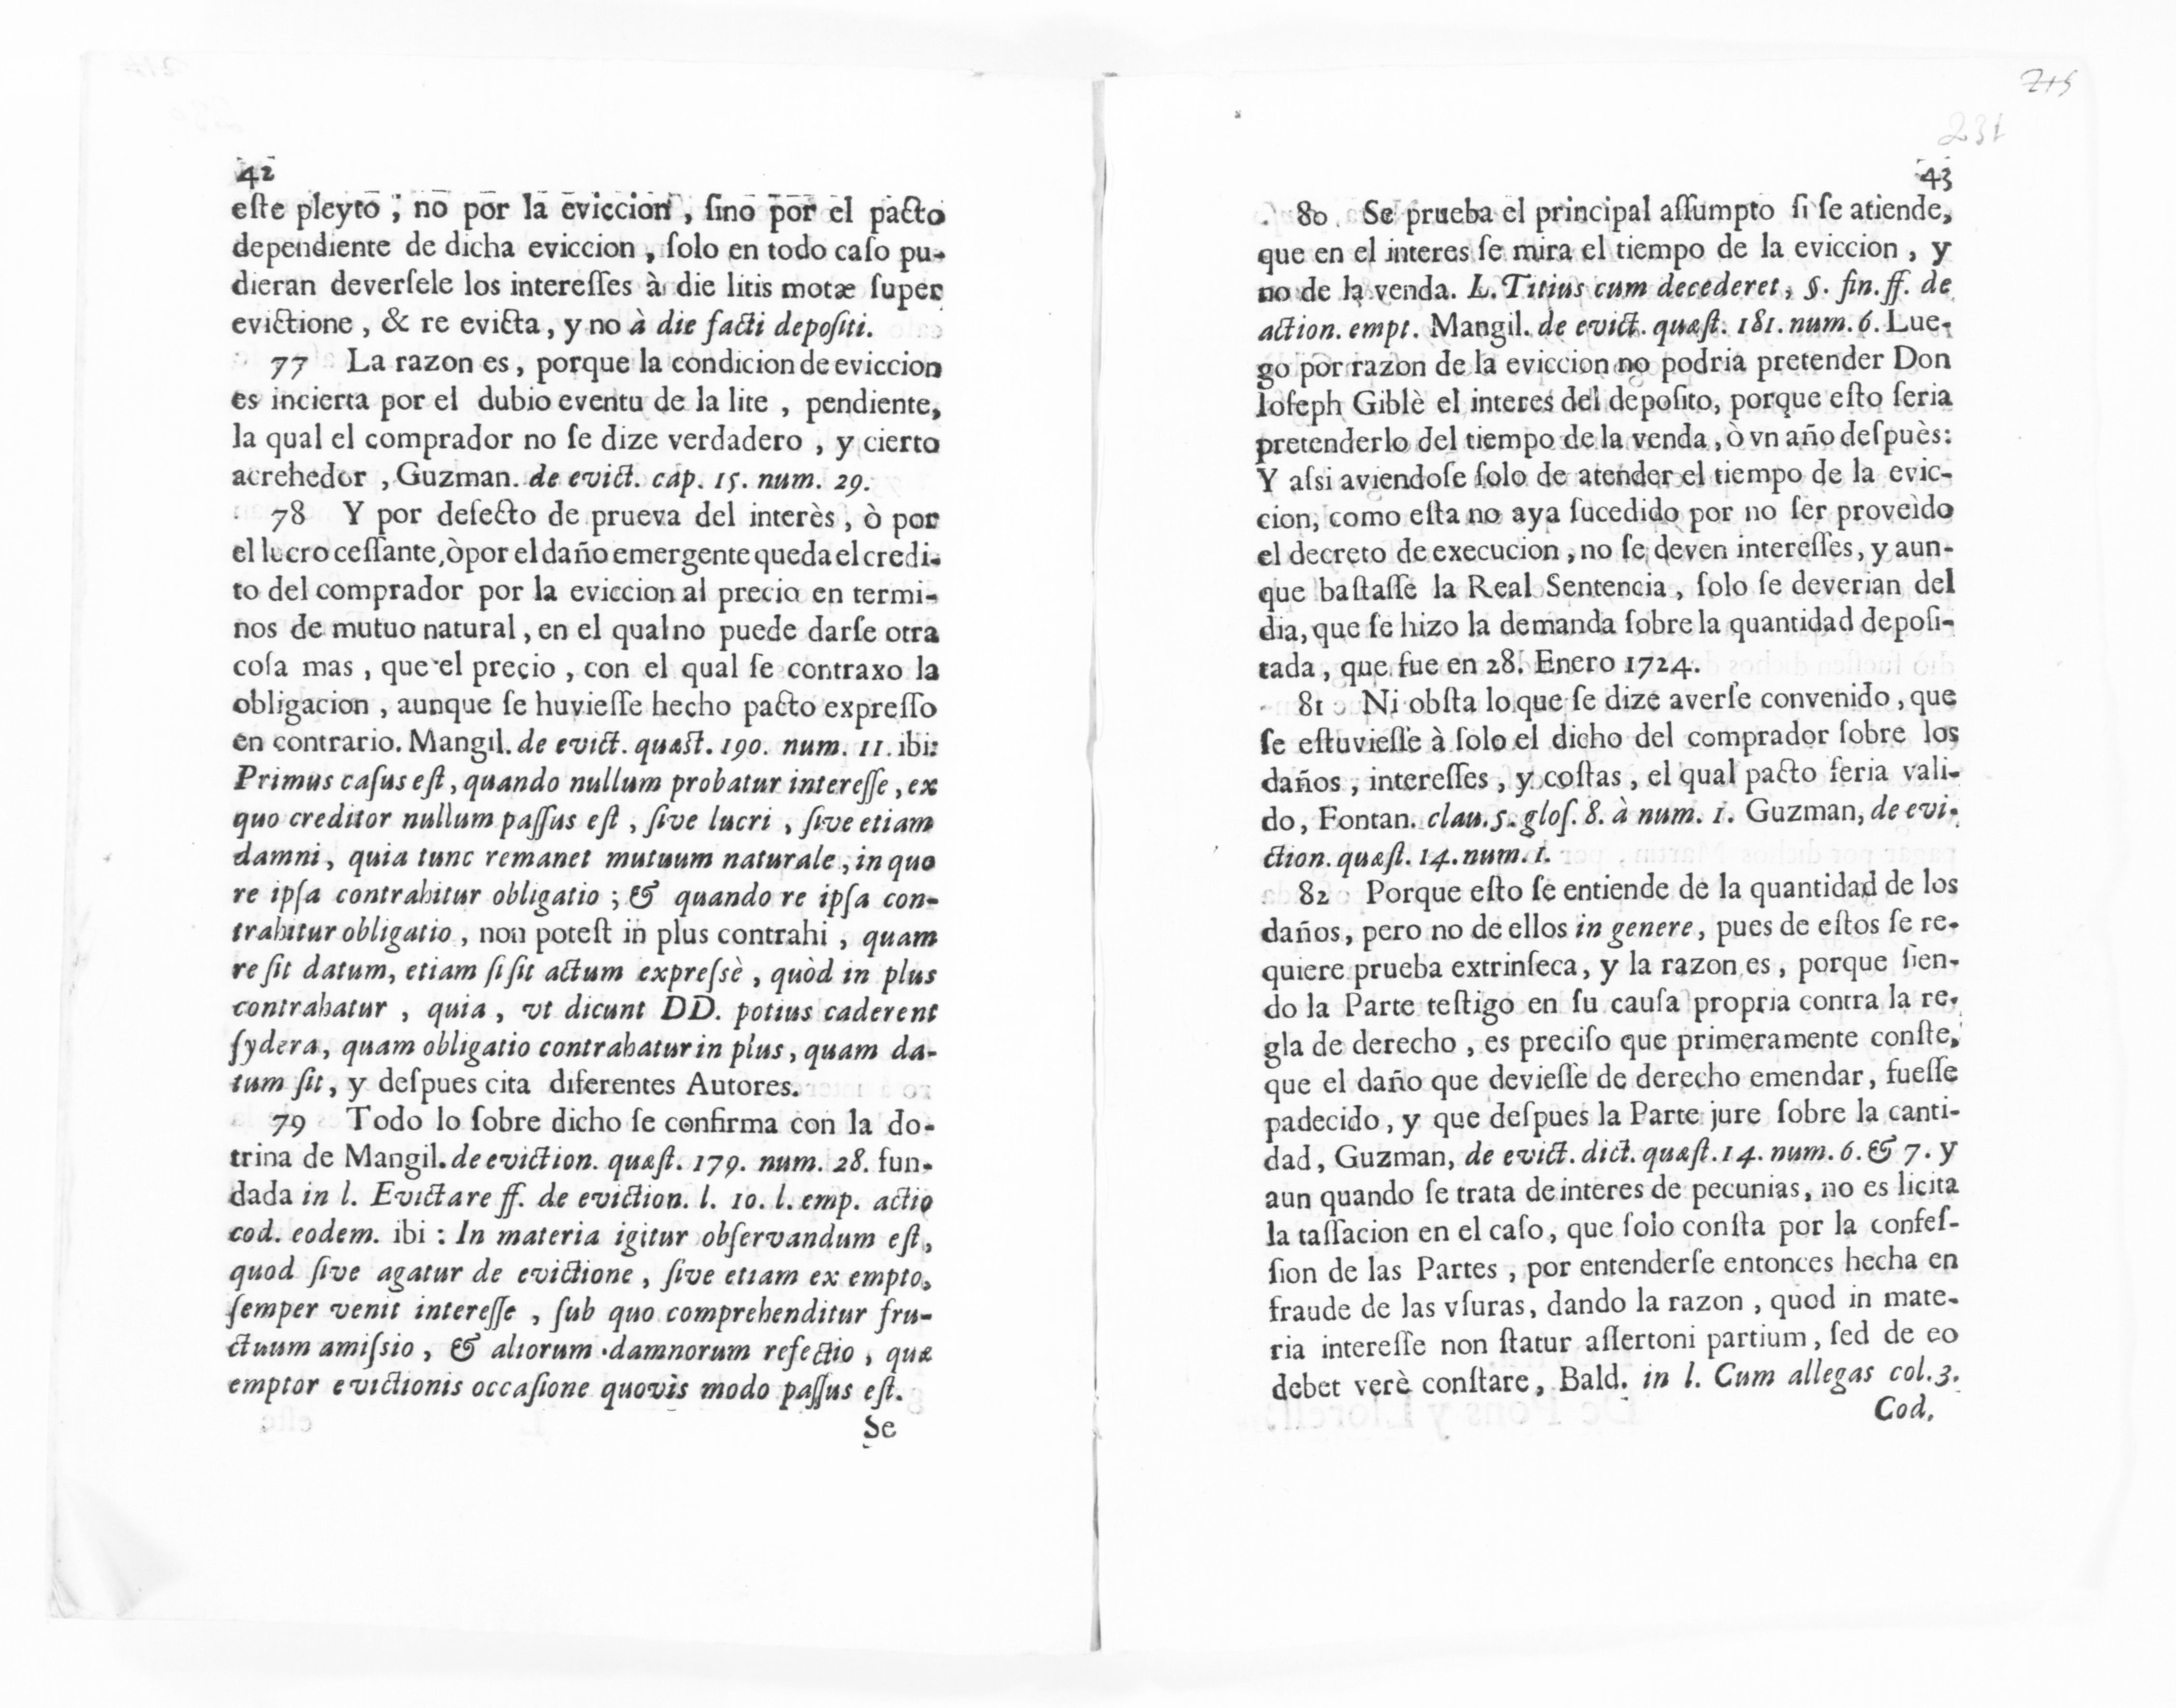 42
eſte pleyto, no por la eviccion, ſino por el pacto
dependiente de dicha eviccion, ſolo en todo caſo pu-
dieran deverſele los intereſſes à die litis motæ ſuper
evictione, & re evicta, y no à die facti depoſiti.
77 La razon es, porque la condicion de eviccion
es incierta por el dubio eventu de la lite, pendiente,
la qual el comprador no ſe dize verdadero, y cierto
acrehedor, Guzman. de evict. cap. 15. num. 29.
78 Y por defecto de prueva del interès, ò por
el lucro ceſſante, ò por el daño emergente queda el credi-
to del comprador por la eviccion al precio en termi-
nos de mutuo natural, en el qual no puede darſe otra
coſa mas, que el precio, con el qual ſe contraxo la
obligacion, aunque ſe huvieſſe hecho pacto expreſſo
en contrario. Mangil. de evict. quæſt. 190. num. 11. ibi:
Primus caſus eſt, quando nullum probatur intereſſe, ex
quo creditor nullum paſſus eſt, ſive lucri, ſive etiam
damni, quia tunc remanet mutuum naturale, in quo
re ipſa contrahitur obligatio; & quando re ipſa con-
trahitur obligatio, non poteſt in plus contrahi, quam
re ſit datum, etiam ſi ſit actum expreſsè, quòd in plus
contrahatur, quia, vt dicunt DD. potius caderent
ſydera, quam obligatio contrahatur in plus, quam da-
tum ſit, y deſpues cita diferentes Autores.
79 Todo lo ſobre dicho ſe confirma con la do-
trina de Mangil. de eviction. quæſt. 179. num. 28. fun-
dada in l. Evictare ff. de eviction. l. 10. l. emp. actio
cod. eodem. ibi: In materia igitur obſervandum eſt,
quod ſive agatur de evictione, ſive etiam ex empto,
ſemper venit intereſſe, ſub quo comprehenditur fru-
ctuum amiſsio, & aliorum damnorum refectio, quæ
emptor evictionis occaſione quovis modo paſſus eſt.
Se
215
231
43
80 Se prueba el principal aſſumpto ſi ſe atiende,
que en el interes ſe mira el tiempo de la eviccion, y
no de la venda. L. Titius cum decederet, §. fin. ff. de
action. empt. Mangil. de evict. quæſt. 181. num. 6. Lue-
go por razon de la eviccion no podria pretender Don
Ioſeph Giblè el interes del depoſito, porque eſto ſeria
pretenderlo del tiempo de la venda, ò vn año deſpuès:
Y aſsi aviendoſe ſolo de atender el tiempo de la evic-
cion, como eſta no aya ſucedido por no ſer proveìdo
el decreto de execucion, no ſe deven intereſſes, y aun-
que baſtaſſe la Real Sentencia, ſolo ſe deverian del
dia, que ſe hizo la demanda ſobre la quantidad depoſi-
tada, que fue en 28. Enero 1724.
81 Ni obſta lo que ſe dize averſe convenido, que
ſe eſtuvieſſe à ſolo el dicho del comprador ſobre los
daños, intereſſes, y coſtas, el qual pacto ſeria vali-
do, Fontan. clau. 5. gloſ. 8. à num. 1. Guzman, de evi-
ction. quæſt. 14. num. 1.
82 Porque eſto ſe entiende de la quantidad de los
daños, pero no de ellos in genere, pues de eſtos ſe re-
quiere prueba extrinſeca, y la razon es, porque ſien-
do la Parte teſtigo en ſu cauſa propria contra la re-
gla de derecho, es preciſo que primeramente conſte,
que el daño que devieſſe de derecho emendar, fueſſe
padecido, y que deſpues la Parte jure ſobre la canti-
dad, Guzman, de evict. dict. quæſt. 14. num. 6. & 7. y
aun quando ſe trata de interes de pecunias, no es licita
la taſſacion en el caſo, que ſolo conſta por la confeſ-
ſion de las Partes, por entenderſe entonces hecha en
fraude de las vſuras, dando la razon, quod in mate-
ria intereſſe non ſtatur aſſertoni partium, ſed de eo
debet verè conſtare, Bald. in l. Cum allegas col. 3.
Cod.